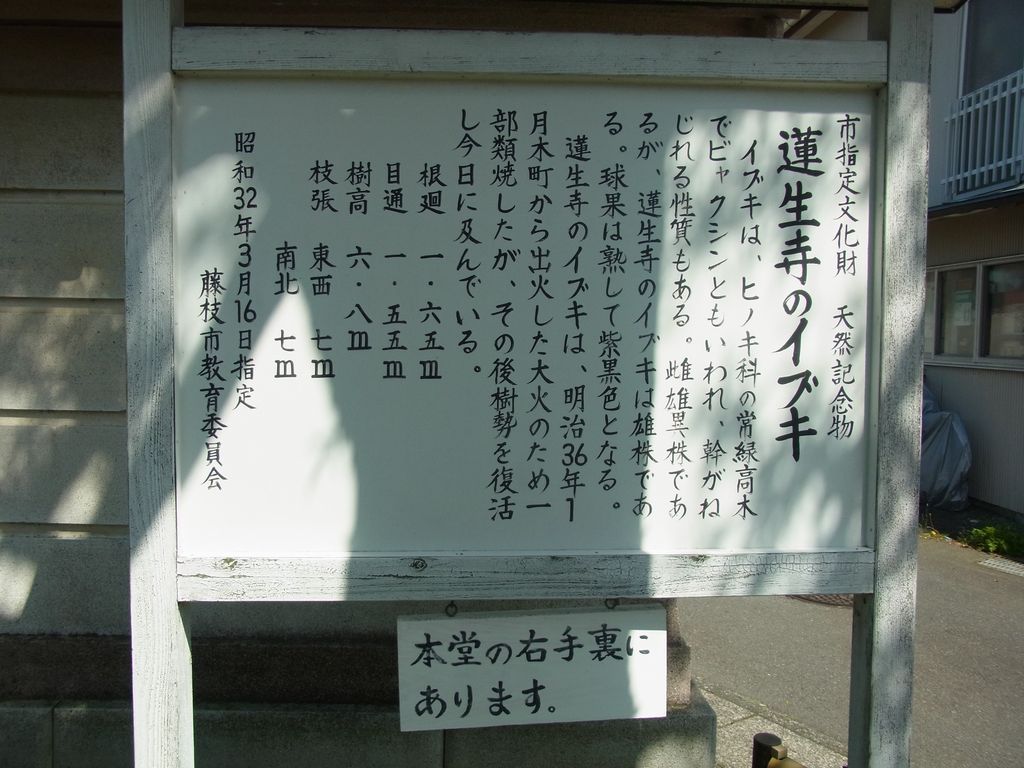 市指定文化財　天然記念物
蓮生寺のイブキ
イブキは、ヒノキ科の常緑高木
でビャクシンともいわれ、幹がね
じれる性質もある。雌雄異株であ
るが、蓮生寺のイブキは雄株であ
る。球果は熟して紫黒色となる。
蓮生寺のイブキは、明治36年1
月木町から出火した大火のため一
部類焼したが、その後樹勢を復活
し今日に及んでいる。
根廻　一・六五m
目通　一・五五m
樹高　六・八m
枝張　東西　七m
南北　七m
昭和32年3月16日指定
藤枝市教育委員会
本堂の右手裏に
あります。